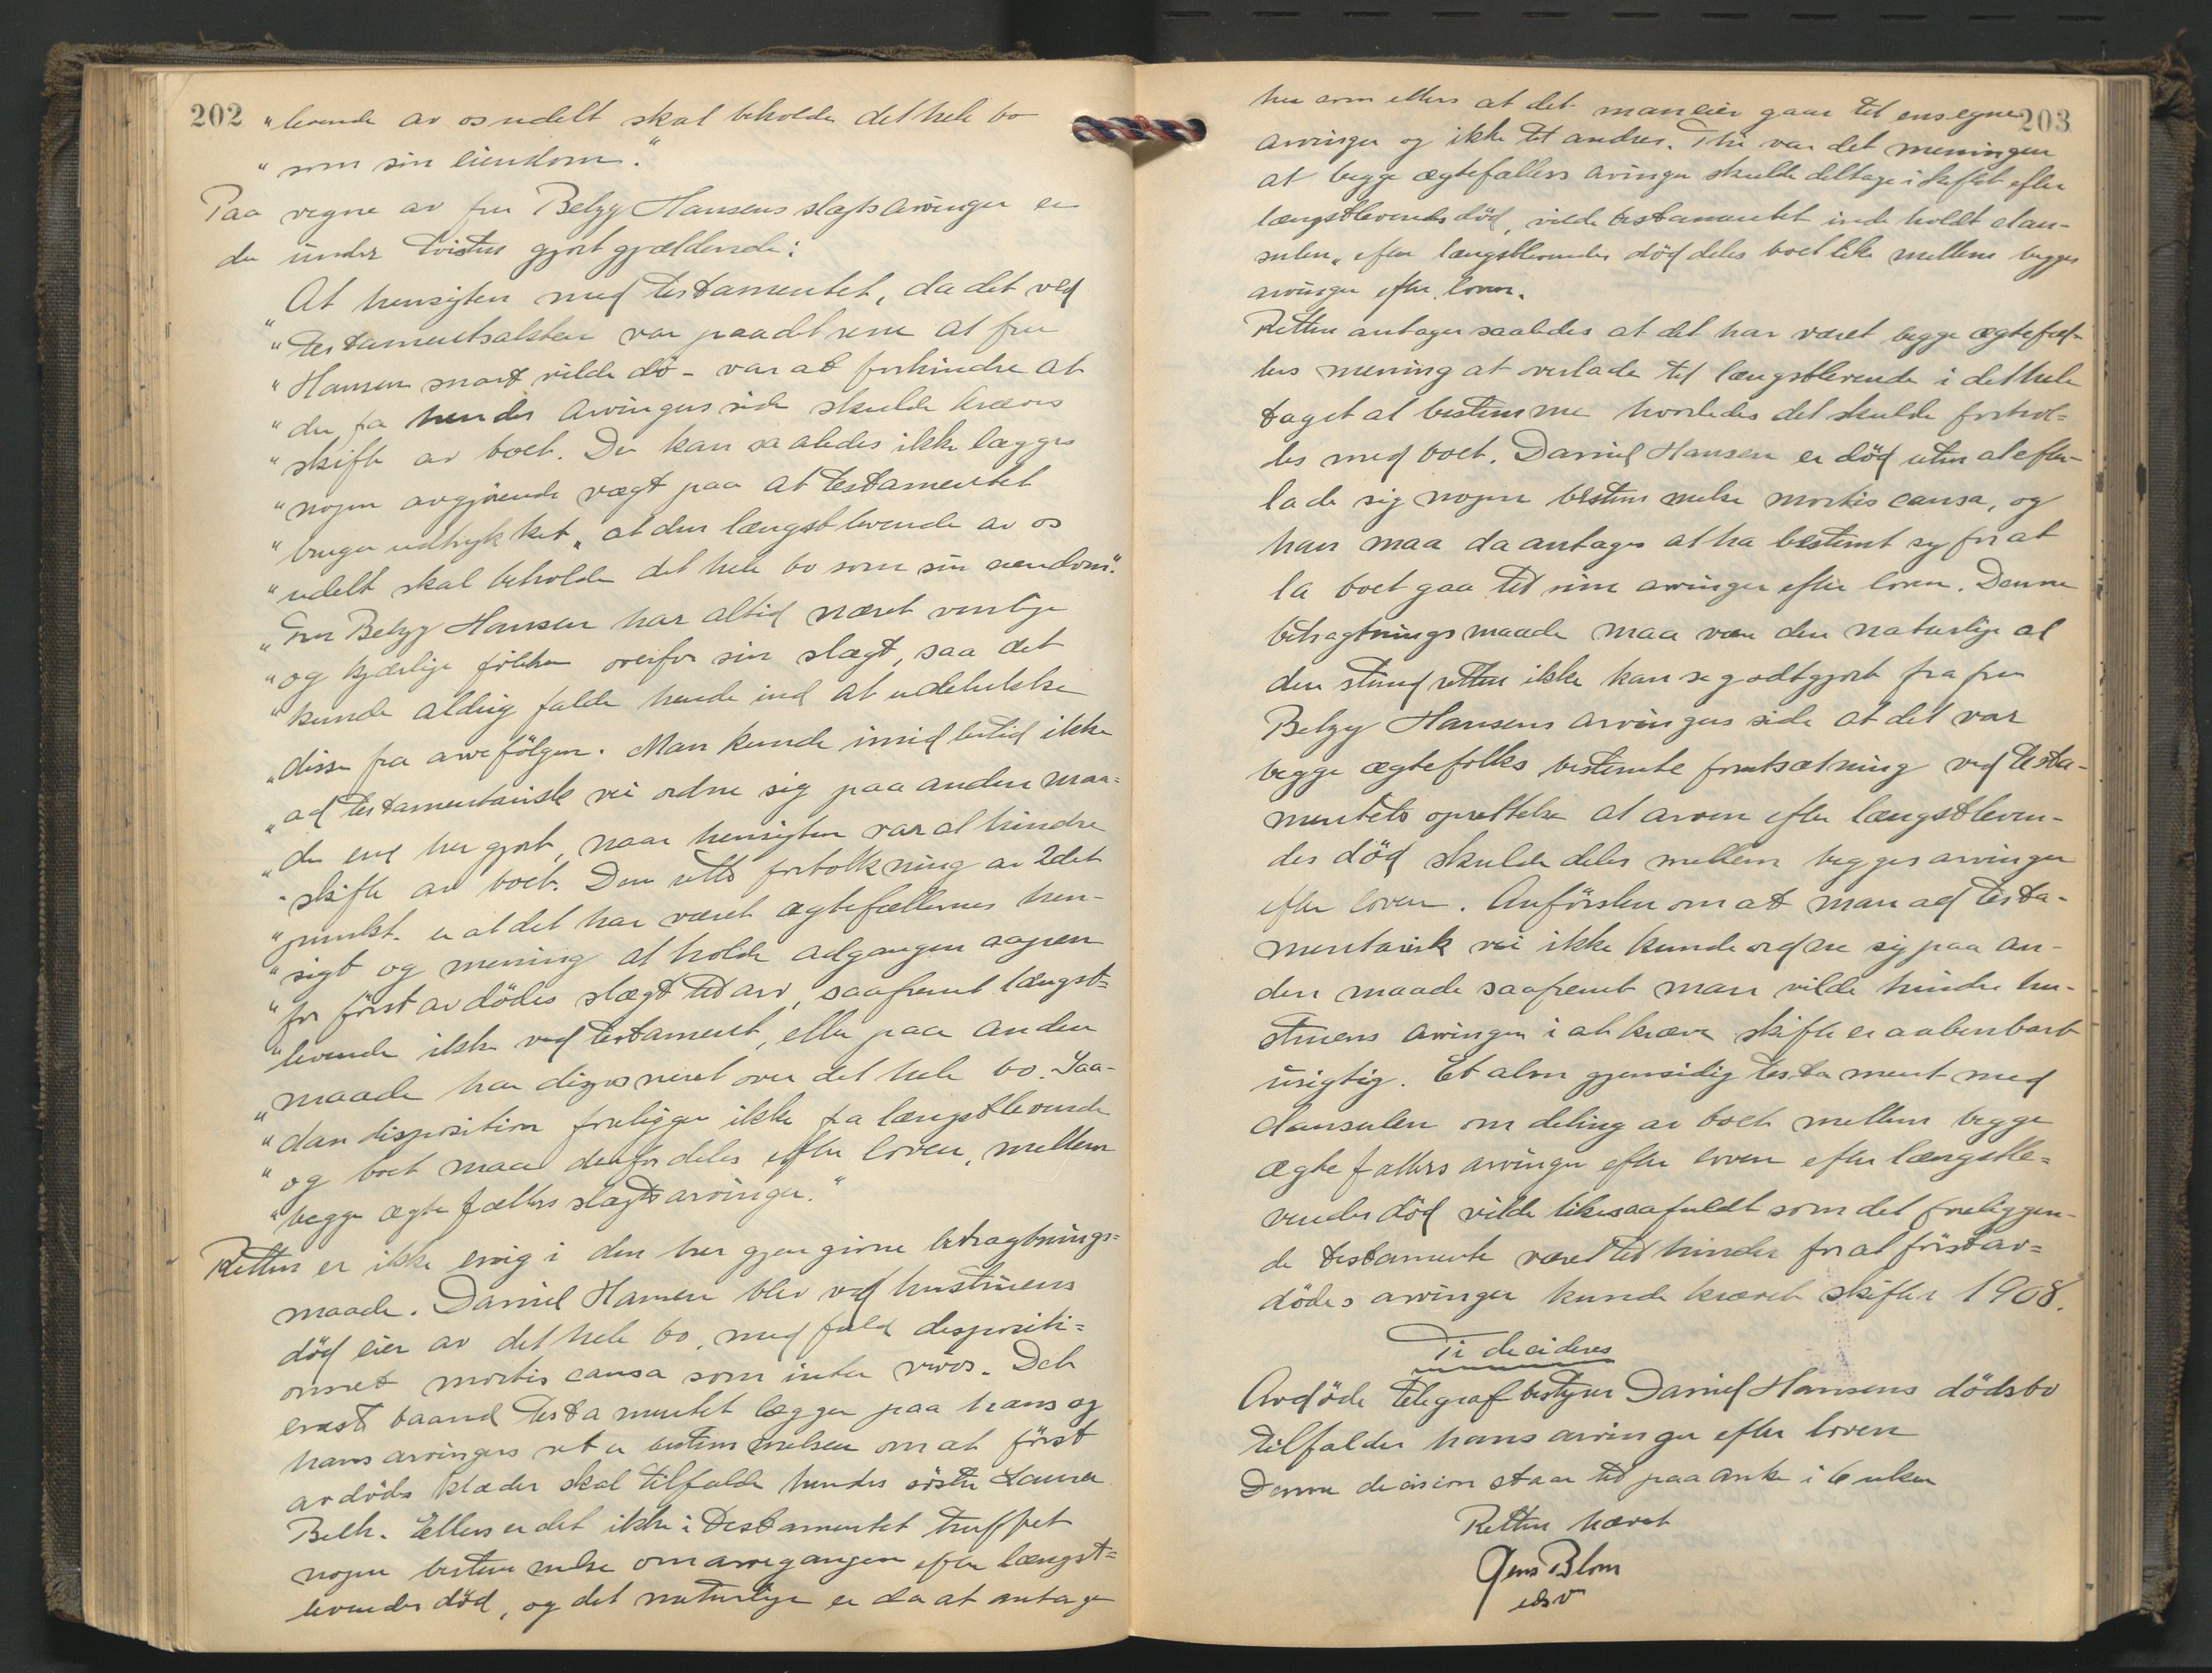 202
"levende av os udelt skal beholde det hele bo
"som sin eiendom."
Paa vegne av fru Betzy Hansens slægtsarvinger er
der under tvisten gjort gjældende:
"At hensigten med testamentet, da det ved
"testamentsakten var paa det rene at fru
"Hansen snart vilde dö – var at forhindre at
"der fra hendes arvingers side skulde kræves
"skifte av boet. Der kan saaledes ikke lægges
"nogen avgjörende vægt paa at testamentet
"bruger udtrykket "at den længstlevende av os
"udelt skal beholde det hele bo som sin eiendom".
"Fru Betzy Hansen har altid næret venlige
"og kjærlige fölelser overfor sin slægt, saa det
"kunde aldrig falde hende ind at udelukke
"disse fra arvefölgen. Man kunde imidlertid ikke
"ad testamentarisk vei ordne sig paa anden maa-
"de end her gjort, naar hensigten var at hindre
"skifte av boet. Den rette fortolkning av 2det
"punkt. er at det har været ægtefællernes hen-
"sigt og mening at holde adgangen aapen
"for först avdödes slægt til arv, saafremt længst=
"levende ikke ved testament, eller paa anden
"maade har disponeret over det hele bo. Saa-
"dan disposition foreligger ikke fra længstlevende
"og boet maa derfor deles efter loven, mellem
"begge ægtefællers slægtsarvinger."
Retten er ikke enig i den her gjengivne betragtnings=
maade. Daniel Hansen blev ved hustruens
död eier av det hele bo, med fuld dispositi=
onsret mortis causa som inter vivos. Det
eneste baand testamentet lægger paa hans og
hans arvingers ret er bestemmelsen om at först
avdödes klæder skal tilfalde hendes söster Laura
Beth. Ellers er det ikke i testamentet truffet
nogen bestemmelse om arvegangen efter længst=
levendes död, og det naturlige er da at antage
203
her som ellers at det man eier gaar til ens egne
arvinger og ikke til andres. Thi var det meningen
at begge ægtefællers arvinger skulde deltage i skiftet efter
længstlevendes död, vilde testamentet inde holdt clau-
sulen "efter længstlevendes död deles boet like mellem begges
arvinger efter loven.
Retten antager saaledes at det har været begge ægtefæl-
lers mening at overlade til længstlevende i det hele
taget at bestemme hvorledes det skulde forhol=
des med boet. Daniel Hansen er död uten at efter-
lade sig nogen bestemmelse mortis causa, og
han maa da antages at ha bestemt sig for at
la boet gaa til sine arvinger efter loven. Denne
betragtningsmaade maa være den naturlige al
den stund retten ikke kan se godtgjort fra fru
Betzy Hansens arvingers side at det var
begge ægtefolks bestemte forutsætning ved testa-
mentets oprettelse at arven efter længstleven-
des död skulde deles mellem begges arvinger
efter loven. Anförslen om at man ad testa-
mentarisk vei ikke kunde ordne sig paa an-
den maade saafremt man vilde hindre hu-
struens arvinger i at kræve skifte er aabenbart
urigtig. Et alm gjensidig testament med
clausulen om deling av boet mellem begge
ægtefællers arvinger efter loven efter længstle=
vendes död vilde likesaafuldt som det foreliggen-
de testamente været til hinder for at först av=
dödes arvinger kunde krævet skifte i 1908.
Ti decideres
Avdöde telegrafbestyrer Daniel Hansens dödsbo
tilfalder hans arvinger efter loven
Denne decision staar til paaanke i 6 uker
Retten hævet
Jens Blom